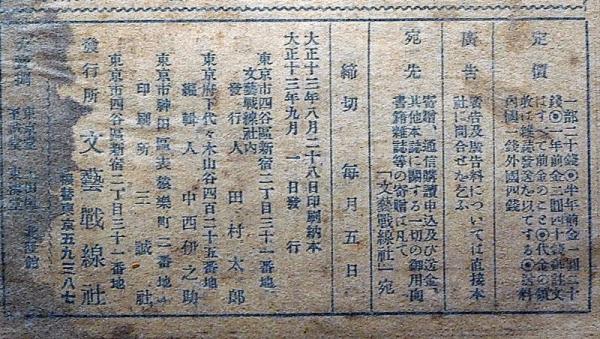 定價
一部二十錢◎半年前金一圓二十
錢◎一年前金二圓四十錢◎註文
はすべて前金のこと◎代金の領
收は雜誌發送を以てする◎送料
内國一錢外國四錢
廣告
廣告及廣告料については直接本
社に問合せた乞ふ
宛先
寄贈、通信購讀申込及び送金、
其他本誌に關する一切の御用向
書籍雜誌等の寄贈は凡て
「文藝戰線社」宛
締切 每月五日
大正十三年八月二十八日印刷納本
大正十三年九月一日發行
東京市四谷區新宿二丁目三十一番地
文藝戰線社内
發行人 田村太郎
東京府下代々木山谷四百三十五番地
編輯人 中西伊之助
東京市神田區表猿樂町二番地
印刷所 三誠社
東京市四谷區新宿二丁目三十一番地
發行所 文藝戰線社
振替東京五九三八七
東京堂
北隆館
至誠堂 東海堂